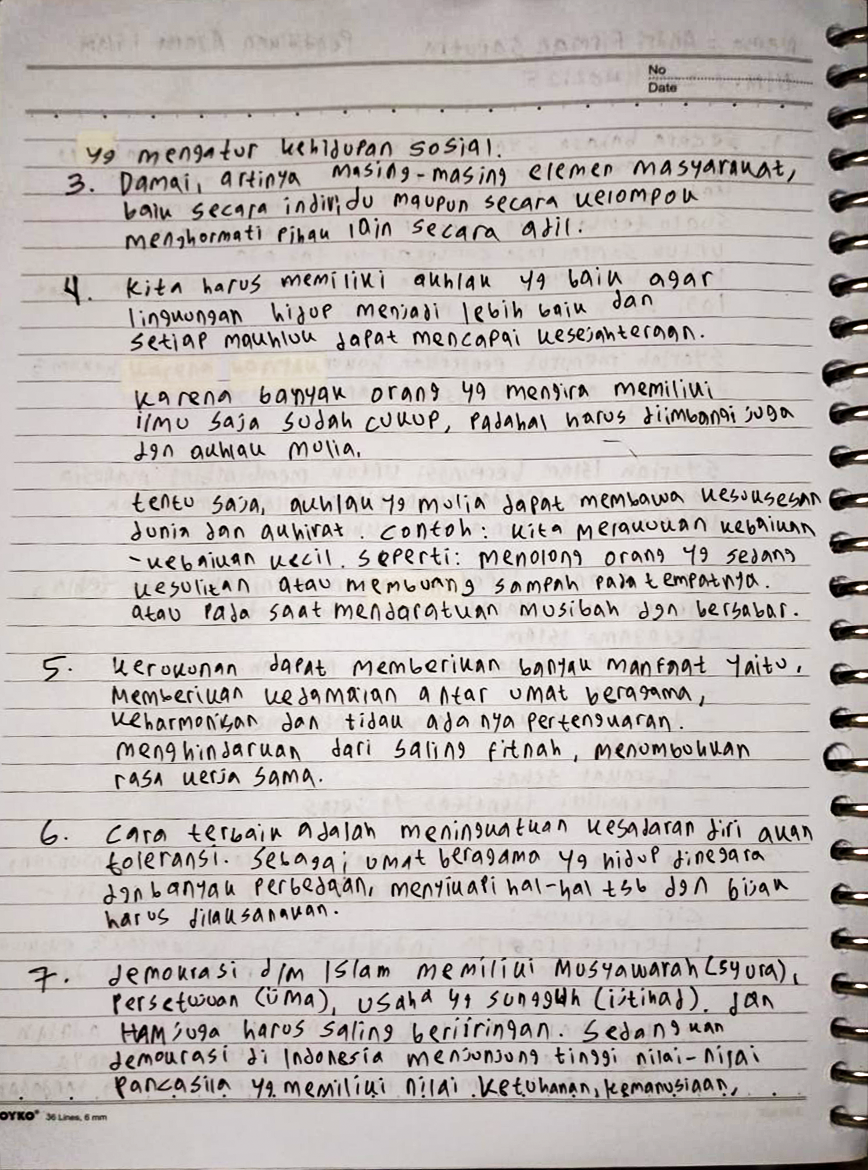 No
Date
yg mengatur kehidupan sosial.
3. Damai, artinya masing-masing elemen masyarakat,
baik secara individu maupun secara kelompok
menghormati pihak lain secara adil.
4. Kita harus memiliki akhlak yg baik agar
lingkungan hidup menjadi lebih baik dan
setiap makhluk dapat mencapai kesejahteraan.
karena banyak orang yg mengira memiliki
ilmu saja sudah cukup, padahal harus diimbangi juga
dgn akhlak mulia.
tentu saja, akhlak yg mulia dapat membawa kesuksesan
dunia dan akhirat. contoh: kita merakukan kebaikan
-kebaikan kecil. seperti: menolong orang yg sedang
kesulitan atau membuang sampah pada tempatnya.
atau pada saat mendaratkan musibah dgn bersabar.
5. kerukunan dapat memberikan banyak manfaat yaitu,
memberikan kedamaian antar umat beragama,
keharmonisan dan tidak adanya pertengkaran.
menghindarkan dari saling fitnah, menumbuhkan
rasa kerja sama.
6. Cara terbaik adalah meningkatkan kesadaran diri akan
toleransi. sebagai umat beragama yg hidup dinegara
dgn banyak perbedaan, menyikapi hal-hal tsb dgn bijak
harus dilaksanakan.
7. demokrasi dlm Islam memiliki Musyawarah (syura),
persetujuan (ijma), usaha yg sungguh (ijtihad). dan
HAM juga harus saling beriiringan. sedangkan
demokrasi di Indonesia menjunjung tinggi nilai-nilai
pancasila yg memiliki nilai ketuhanan, kemanusiaan,
OYKO® 36 Lines, 6 mm